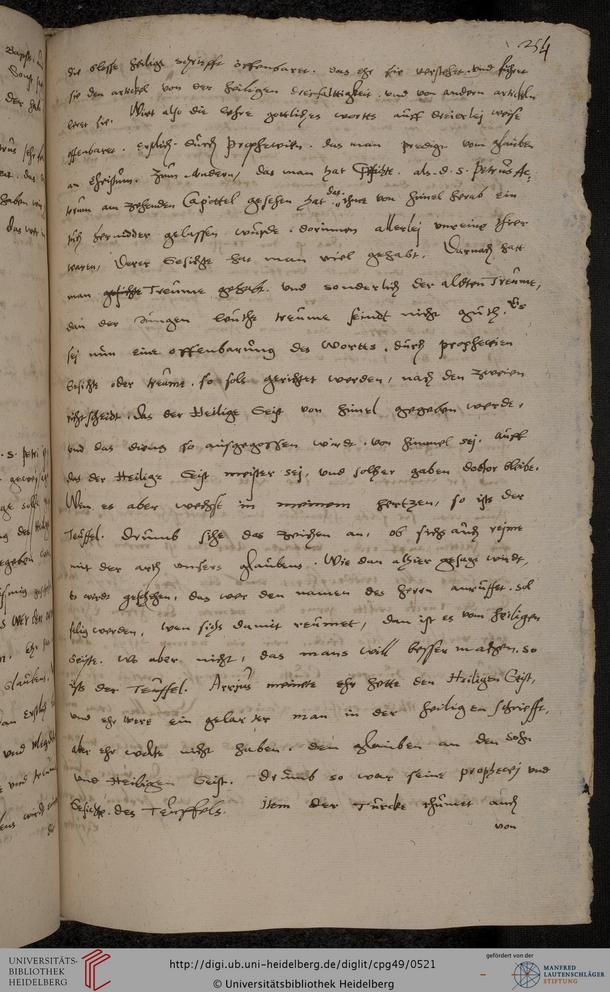 254
die blosse heilige schrifft offenbaret. das ehr sie verstehet und führet
sie den artickel von der heiligen dreifaltigkeit. und von andern artickeln
leret sie. Wirt also die lehre gottliches wortes auff dreierlej weise
offenbaret. erstlich. durch Propheceien. das man predigt vom glauben
an Christum. Zum Andern, das man hat Gesichte. als. d. s. Petrus Ac-
torum am zehenden Capittel gesehen hat das ihme von himel herab ein
tuch hernidder gelassen würde. dorinnen allerlej unreine thier
waren, Derer Gesichte hat man viel gehabt. Darnach hatt
man gesichte Treume gehabt. und sonderlich der alten Treume,
dan der Jungen leuthe treume seindt nicht guth. Es
sej nun eine offenbarung des wortes. durch propheceien
Gesichte oder treume. so sols gerichtet werden, nach den zweien
das der Heilige Geist von himel gegeben werde,
und das dieng so ausgegossen wirdt. von himmel sej. auff
das der Heilige Geist meister sej, und solcher gaben doctor bleibe.
Wen es aber wechst in meinem hertzen, so ists der
Teuffel. Drumb sihe das zeichen an, ob sichs auch reime
mit der arth unsers glaubens. Wie dan alhier gesagt wirdt,
Es wirdt geschehen, das wer den namen des herrn anruffet. sol
selig werden, wen sichs damit reumet, dan ist es vom heiligen
Geiste. wo aber nicht, das mans will besser machen. so
ists der Teuffel. Arrius meinete ehr hette den Heiligen Geist,
und ehr were ein gelarter man in der heiligen schriefft,
aber ehr wolte nicht haben. den glauben an den sohn
und Heiligen Geist. Drumb so war seine prophecej und
Gesichte. des Teuffels. Item der Türcke rhümet auch
von
UNIVERSITÄTS-
BIBLIOTHEK
HEIDELBERG
http://digi.ub.uni-heidelberg.de/diglit/cpg49/0521
© Universitätsbibliothek Heidelberg
gefördert von der
MANFRED
LAUTENSCHLÄGER
STIFTUNG